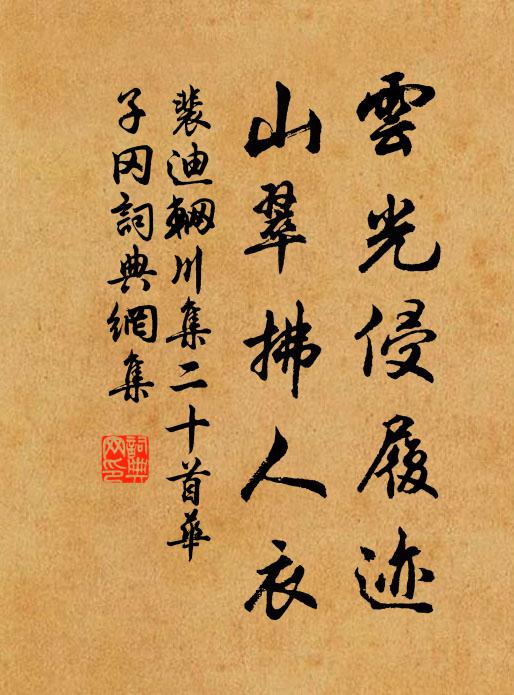 雲光侵履迹
山翠拂人衣
裴迪輞川集二十首華
子冈詞典網集
詞典
网印